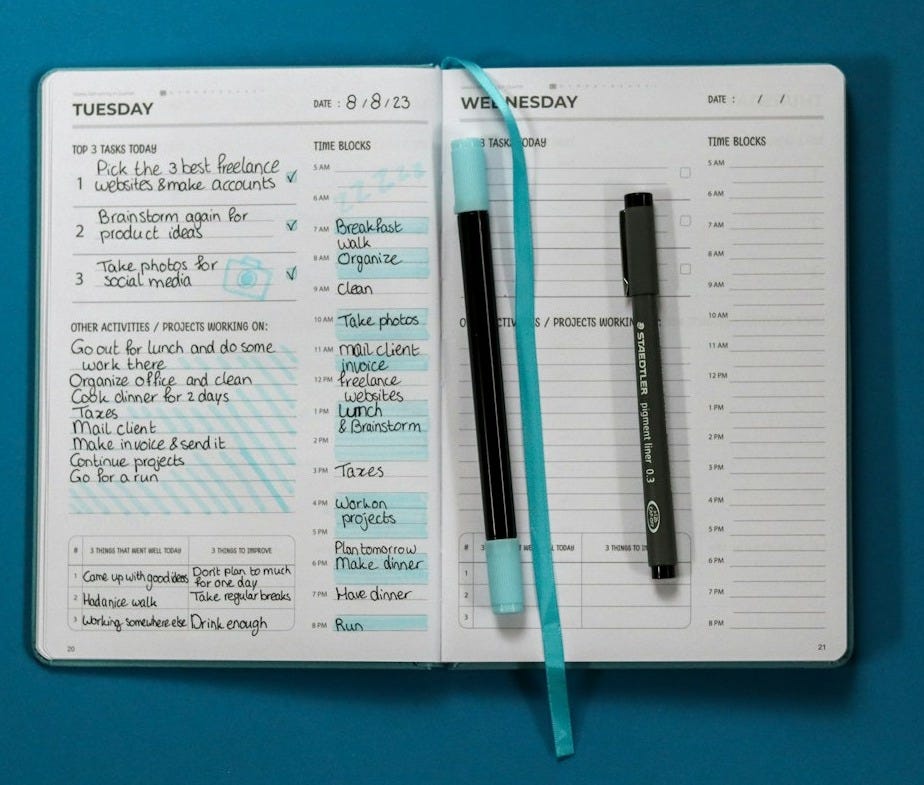 TUESDAY
DATE : 8/8/23
TOP 3 TASKS TODAY
1 Pick the 3 best freelance
websites & make accounts
2 Brainstorm again for
product ideas
3 Take photos for
social media
OTHER ACTIVITIES / PROJECTS WORKING ON:
Go out for lunch and do some
work there
Organize office and clean
Cook dinner for 2 days
Taxes
Mail client
Make invoice & send it
Continue projects
Go for a run
# 3 THINGS THAT WENT WELL TODAY 3 THINGS TO IMPROVE
1 Came up with good ideas Don't plan to much
for one day
2 Had a nice walk Take regular breaks
3 Working somewhere else Drink enough
20
TIME BLOCKS
5 AM
zzzzz
6 AM
7 AM Breakfast
walk
8 AM Organize
9 AM Clean
10 AM Take photos
11 AM mail client
invoice
12 PM freelance
websites
1 PM Lunch
& Brainstorm
2 PM
3 PM Taxes
4 PM Work on
projects
5 PM
Plan tomorrow
6 PM Make dinner
7 PM Have dinner
8 PM Run
WEDNESDAY
DATE : / /
3 TASKS TODAY
/ PROJECTS
# 3
1
2
3
TIME BLOCKS
5 AM
6 AM
7 AM
8 AM
9 AM
10 AM
11 AM
12 PM
1 PM
2 PM
3 PM
4 PM
5 PM
6 PM
7 PM
8 PM
21
STAEDTLER pigment liner 0.3